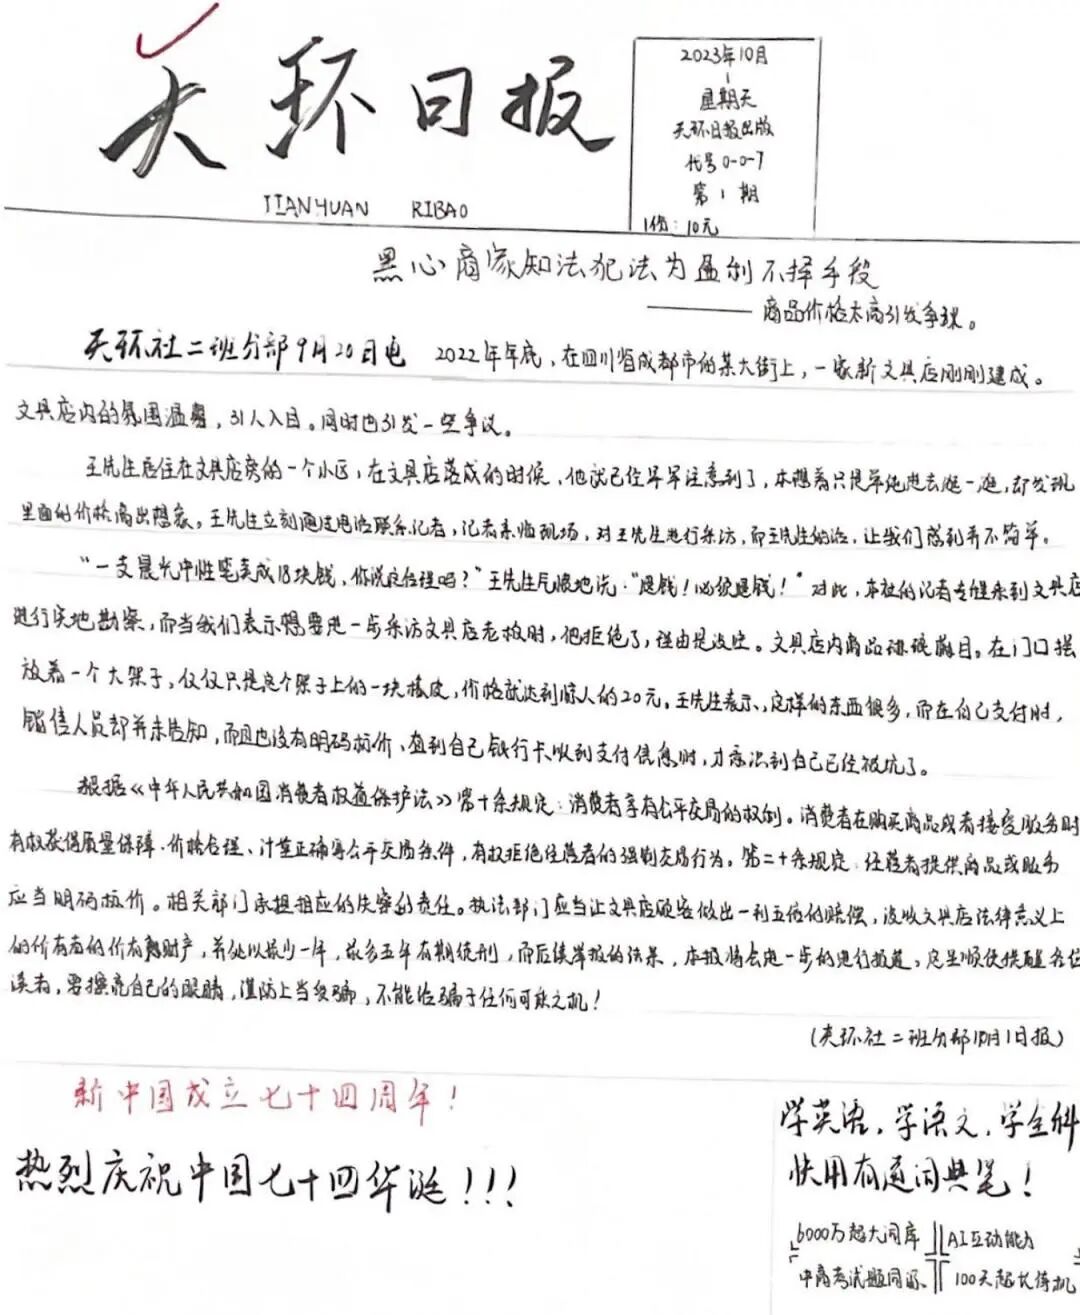 天环日报
TIANHUAN RIBAO
2023年10月
1
星期天
天环日报出版
代号0-0-7
第1期
1价：10元
黑心商家知法犯法为盈利不择手段
——商品价格太高引发争议。
天环社二班分部9月20日电 2022年年底，在四川省成都市的某大街上，一家新文具店刚刚建成。
文具店内的氛围温馨，引人入目。同时也引发一些争议。
王先生居住在文具店旁的一个小区，在文具店落成的时候，他就已经早早注意到了，本想着只是单纯进去逛一逛，却发现
里面的价格高出想象。王先生立刻通过电话联系记者，记者来临现场，对王先生进行采访，而王先生的话，让我们感到并不简单。
“一支晨光中性笔卖成18块钱，你说这合理吗？”王先生气愤地说：“退钱！必须退钱！”对此，本社的记者专程来到文具店
进行实地勘察，而当我们表示想要进一步采访文具店老板时，他拒绝了，理由是没空。文具店内商品琳琅满目。在门口摆
放着一个大架子，仅仅只是这个架子上的一块橡皮，价格就达到惊人的20元。王先生表示，这样的东西很多，而在自己支付时，
销售人员却并未告知，而且也没有明码标价、直到自己银行卡收到支付信息时，才意识到自己已经被坑了。
根据《中华人民共和国消费者权益保护法》第十条规定：消费者享有公平交易的权利。消费者在购买商品或者接受服务时
有权获得质量保障、价格合理、计量正确等公平交易条件，有权拒绝经营者的强制交易行为。第二十条规定：经营者提供商品或服务
应当明码标价。相关部门承担相应的失察的责任。执法部门应当让文具店顾客做出一利五倍的赔偿，没收文具店法律意义上
的价有者的价有财产，并处以最少一年，最多五年有期徒刑，而后续举报的结果，本报将会进一步的进行报道，这里顺便提醒各位
读者，要擦亮自己的眼睛，谨防上当受骗，不能给骗子任何可乘之机！
（天环社二班分部10月1日报）
新中国成立七十四周年！
热烈庆祝中国七十四华诞！！！
学英语，学语文，学全科
快用有道词典笔！
6000万超大词库 AI互动能力
中高考试题同源 100天超长待机